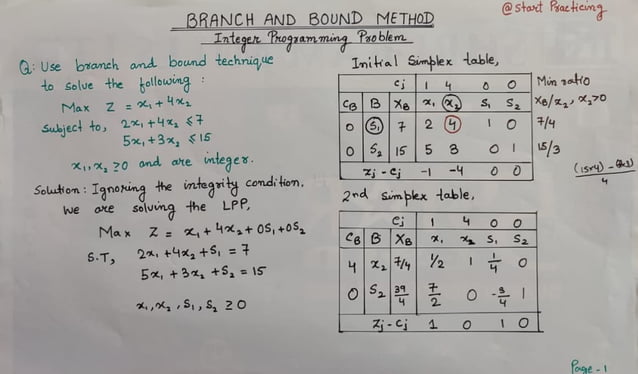 @Start Practicing
BRANCH AND BOUND METHOD
Integer Programming Problem
Q: Use branch and bound technique
to solve the following :
Max Z = x₁ + 4x₂
Subject to, 2x₁ + 4x₂ ≤ 7
5x₁ + 3x₂ ≤ 15
x₁, x₂ ≥ 0 and are integer.
Solution : Ignoring the integrity condition,
we are solving the LPP,
Max Z = x₁ + 4x₂ + 0S₁ + 0S₂
S.T, 2x₁ + 4x₂ + S₁ = 7
5x₁ + 3x₂ + S₂ = 15
x₁, x₂, S₁, S₂ ≥ 0
Initial Simplex table,
Cj 1 4 0 0 Min ratio
CB B XB x₁ x₂ S₁ S₂ XB/x₂, x₂>0
0 S₁ 7 2 4 1 0 7/4
0 S₂ 15 5 3 0 1 15/3
Zj - Cj -1 -4 0 0
2nd simplex table,
Cj 1 4 0 0
CB B XB x₁ x₂ S₁ S₂
4 x₂ 7/4 1/2 1 1/4 0
0 S₂ 39/4 7/2 0 -3/4 1
Zj - Cj 1 0 1 0
Page - 1